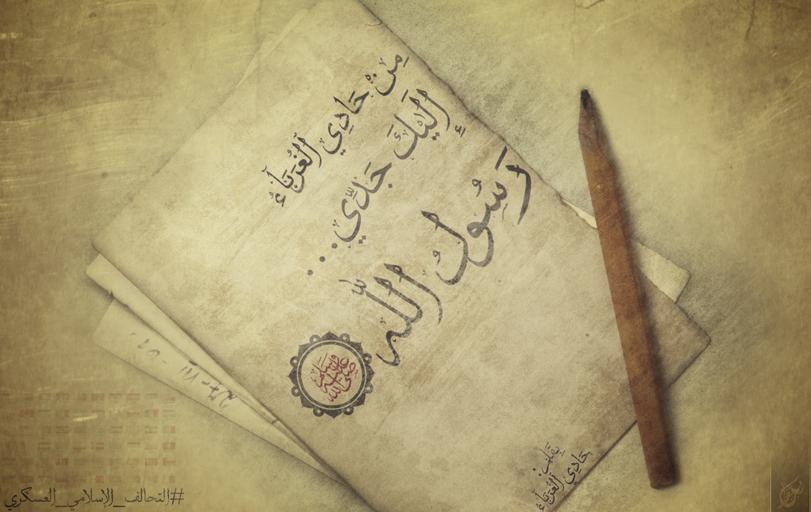 مِنْ حَادِي الْغُرَبَاءُ
إِلَيْكَ جَدِّي...
رَسُولُ اللَّهِ
صلى الله
عليه
وسلم
بِقَلَمِ:
حَادِي الْغُرَبَاءُ
#التحالف_الإسلامي_العسكري